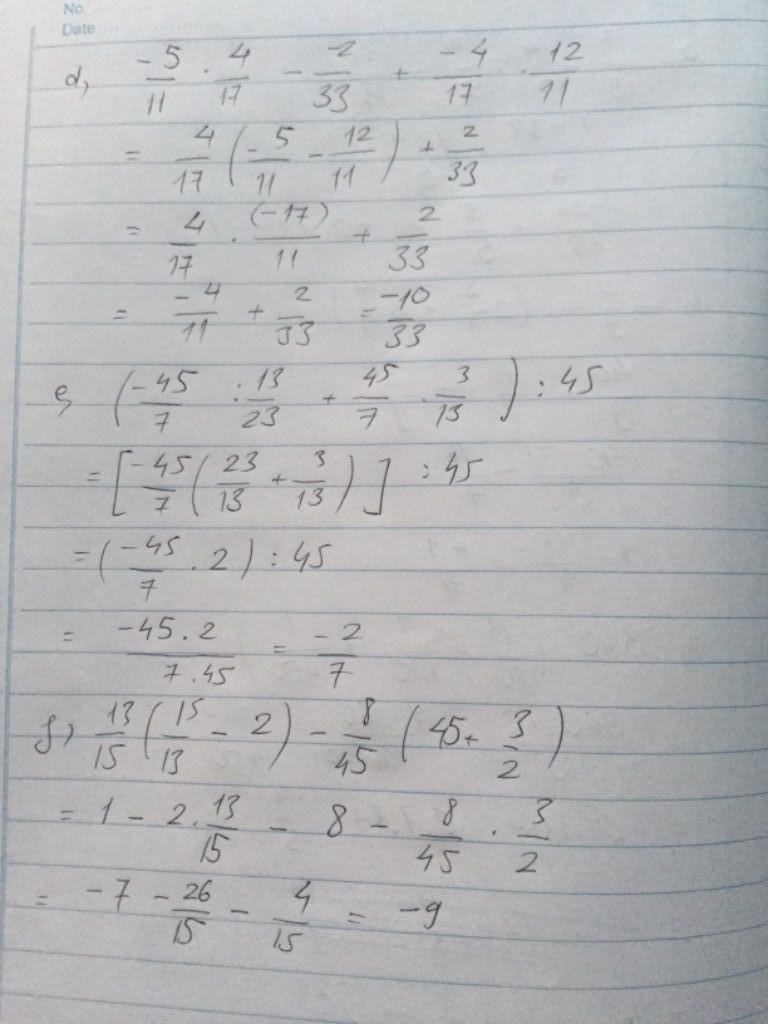 No.
Date
d, -5/11 . 4/17 - -2/33 + -4/17 . 12/11
= 4/17 (-5/11 - 12/11) + 2/33
= 4/17 . (-17)/11 + 2/33
= -4/11 + 2/33 = -10/33
e, (-45/7 : 13/23 + 45/7 . 3/13) : 45
= [-45/7 (23/13 + 3/13)] : 45
= (-45/7 . 2) : 45
= -45.2/7.45 = -2/7
f) 13/15 (15/13 - 2) - 8/45 (45 + 3/2)
= 1 - 2. 13/15 - 8 - 8/45 . 3/2
= -7 - 26/15 - 4/15 = -9